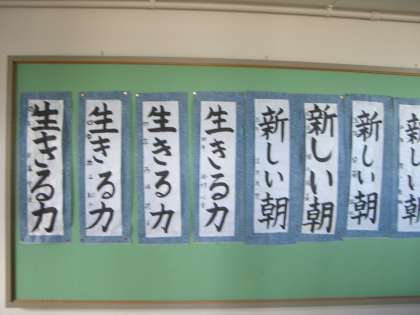 生きる力
生きる力
生きる力
生きる力
新しい朝
新しい朝
新しい朝
新しい朝